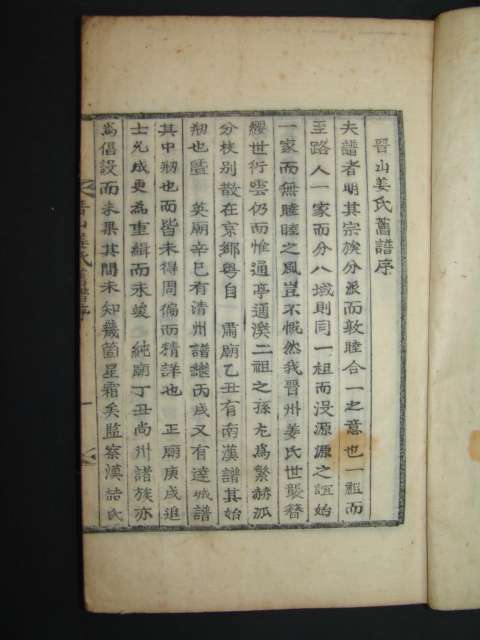 晉山姜氏舊譜序
夫譜者明其宗族分派而敦睦合一之意也一祖而
至路人一家而分八域則同一祖而浸源源之誼始
一家而無睦睦之風豈不慨然我晉州姜氏世襲簪
纓世行雲仍而惟通亭通溪二祖之孫尤爲繁赫派
分枝別散在京鄉粤自 肅廟乙丑有南漢譜其始
刱也曁 英廟辛巳有清州譜繼丙戌又有達城譜
其中刱也而皆未得周徧而精詳也 正廟庚戌進
士允成更爲重緝而未竣 純廟丁丑尚州諸族亦
爲倡設而未果其間未知幾箇星霜矣監察漢喆氏
晉山姜氏舊譜序 一